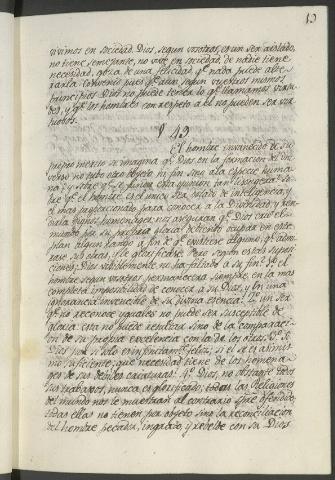 vivimos en sociedad. Dios, segun vosotros, es un ser aislado,
no tiene semejante, no vive en sociedad, de nadie tiene
necesidad, goza de una felicidad qe. nada puede alte-
rarla. Convenid pues qe. aun segun vuestros mismos
principios Dios no puede tener lo qe. llamamos virtu-
des, y qe. los hombres con respeto a el no pueden ser vir-
tuosos.
§ 49
El hombre envanecido de su
propio merito se imagina qe. Dios en la formacion del uni-
verso no tubo otro objeto ni fin sino a la especie huma-
na; y sobre qe. se funda esta opinion tan lisongera? So-
bre qe. el hombre es el unico ser dotado de inteligencia, y
el mas proporcionado para conocer a la Divinidad y ren-
dirla dignos homenages. nos aseguran qe. Dios crió el
mundo por su propria gloria debiendo entrar en este
plan algun rango a fin de qe. existiese alguno, qe. admi-
rase sus obras, y le glorificase. Pero segun estas suposi-
ciones, Dios visiblemente no ha faltado a su fin? 1º. el
hombre segun vosotros permanecerá siempre en la mas
completa imposibilidad de conocer a su Dios, y en una
ignorancia invencible de su divina esencia. 2º. un ser
qe. no reconoce yguales no puede ser susceptible de
gloria: esta no puede resultar sino de la comparaci-
on de su propia excelencia con la de los otros. 3º. Si
Dios por si solo es infinitamte. feliz, si el se es a si mis-
mo suficiente, que necesidad tiene de los homena-
ges de sus débiles criaturas? 4º. Dios, no obstante todos
sus trabajos, nunca es glorificado; todas las Religiones
del mundo nos le muestran al contrario como ofendido;
todas ellas no tienen por objeto sino la reconciliacion
del hombre pecador, ingrato, y rebelde con su Dios